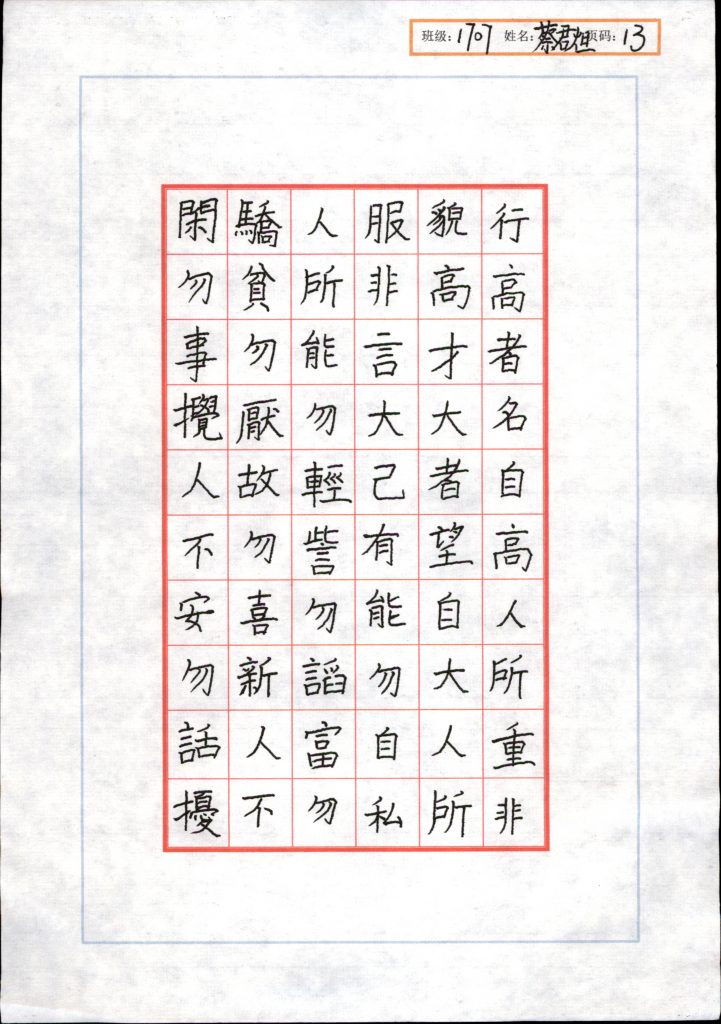 班级:1707 姓名:蔡君烜 页码:13
行高者名自高人所重非
貌高才大者望自大人所
服非言大己有能勿自私
人所能勿輕訾勿謟富勿
驕貧勿厭故勿喜新人不
閑勿事攪人不安勿話擾